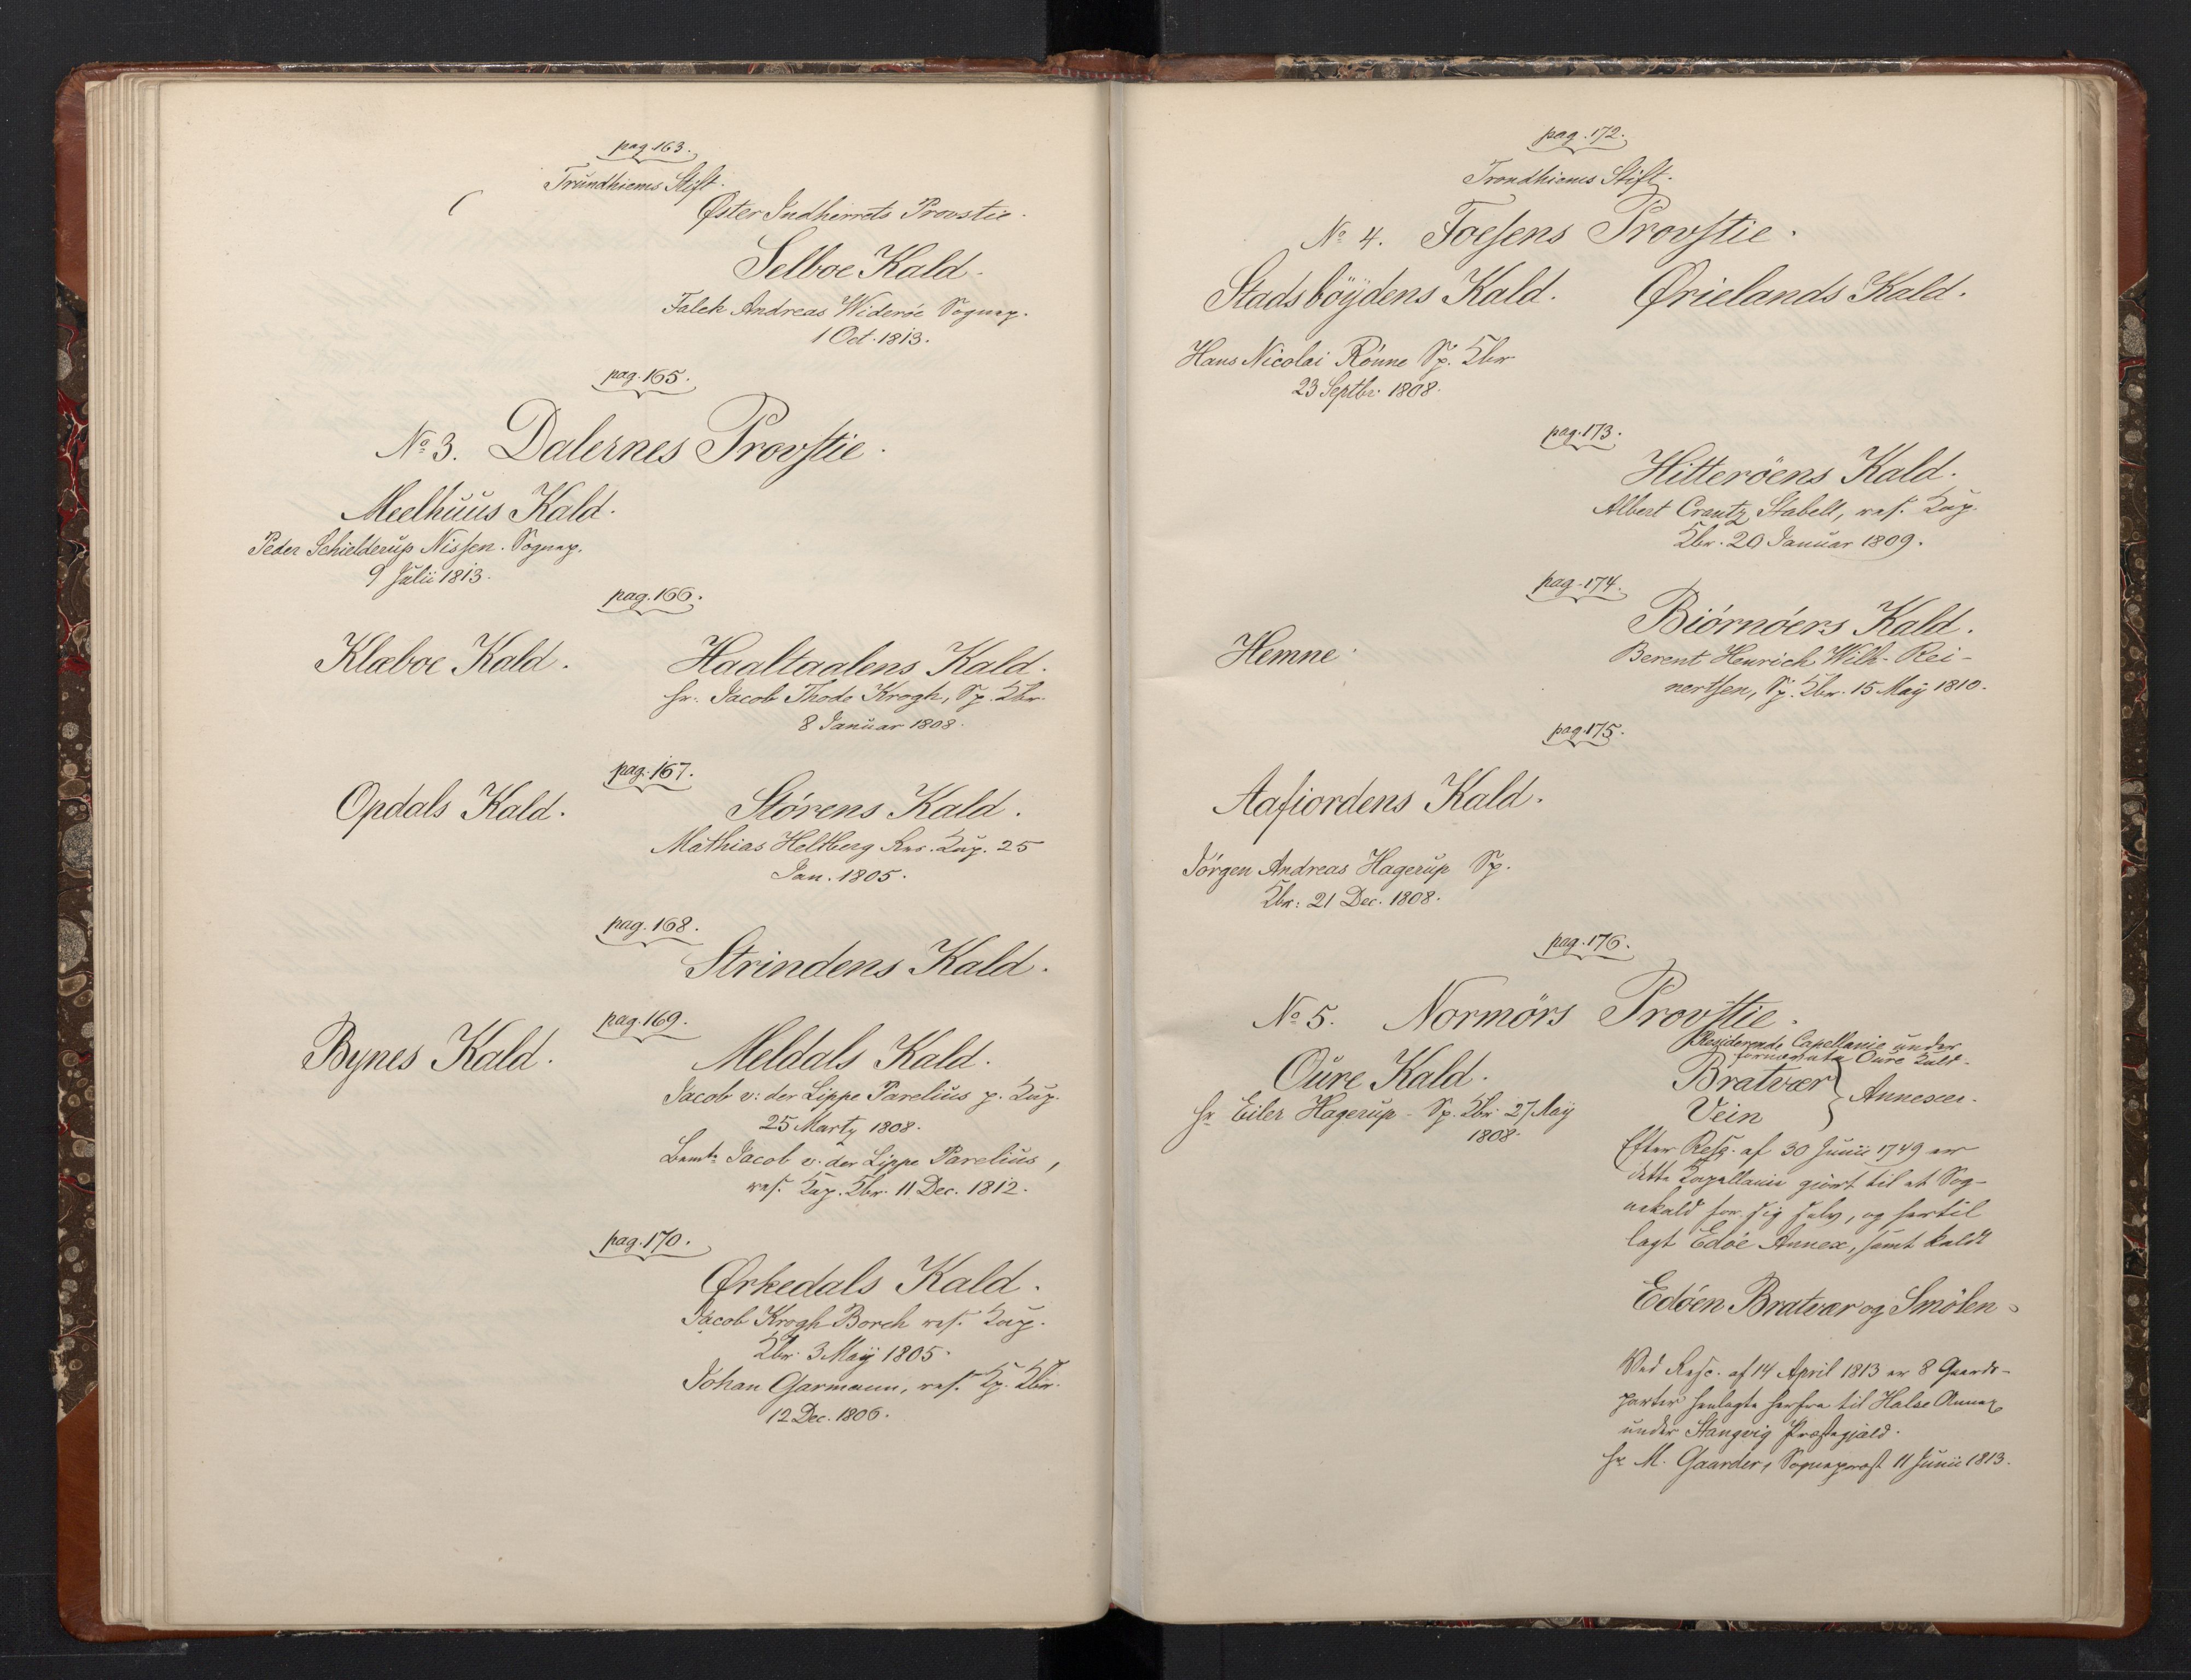 pag. 163.
Trundhiems Stift.
Øster Indherrets Provstie.
Selboe Kald.
Falck Andreas Widerøe Sognep.
1 Oct. 1813.
pag. 165.
No 3. Dalernes Provstie.
Meelhuus Kald.
Peder Schielderup Nissen. Sognep.
9 Julii 1813.
pag. 166.
Klæboe Kald.
Haaltaalens Kald.
Hr. Jacob Thode Krogh, Sp. Kbr.
8 Januar 1808.
pag. 167.
Opdals Kald.
Störens Kald.
Mathias Heltberg Res. Kap. 25
Jan. 1805.
pag. 168.
Strindens Kald.
pag. 169.
Bynes Kald.
Meldals Kald.
Jacob v: der Lippe Parelius p. Kap.
25 Marty 1808.
Bemte Jacob v. der Lippe Parelius,
res. Kap. Kbr. 11 Dec. 1812.
pag. 170.
Ørkedals Kald.
Jacob Krogh Borch res. Kap.
Kbr. 3 Maÿ 1805.
Johan Garmann, res. Kp. Kbr.
12 Dec. 1806.
pag. 172.
Trondhiems Stift.
No 4. Foesens Provstie.
Stadsböÿdens Kald.
Ørielands Kald.
Hans Nicolai Rönne Sp. Kbr
23 Septbr. 1808.
pag. 173.
Hitteröens Kald.
Albert Crantz Stabell, res. Kap.
Kbr. 20 Januar 1809.
pag. 174.
Hemne.
Biörnöers Kald.
Berent Henrich Wilh. Rei-
nertsen, Sp. Kbr. 15 Maÿ 1810.
pag. 175.
Aafiordens Kald.
Jörgen Andreas Hagerup Sp.
Kbr: 21 Dec. 1808.
pag. 176.
No 5. Normörs Provstie.
Oure Kald.
Hr Eiler Hagerup - Sp. Kbr. 27 Maÿ
1808.
Residerende Capellanie under
fornævnte Oure Kald.
Bratvær
Vein
Annexer.
Efter Resc. af 30 Junii 1749 er
dette Capellanie giort til et Sog-
nekald for sig selv, og hertil
lagt Edöe Annex, samt kaldt
Edöen Bratvær og Smölen.
Ved Resc. af 14 April 1813 er 8 Gaards-
parter henlagte herfra til Halse Annex
under Stangvig Præstegjæld.
Hr M. Gaarder, Sogneprest 11 Junii 1813.